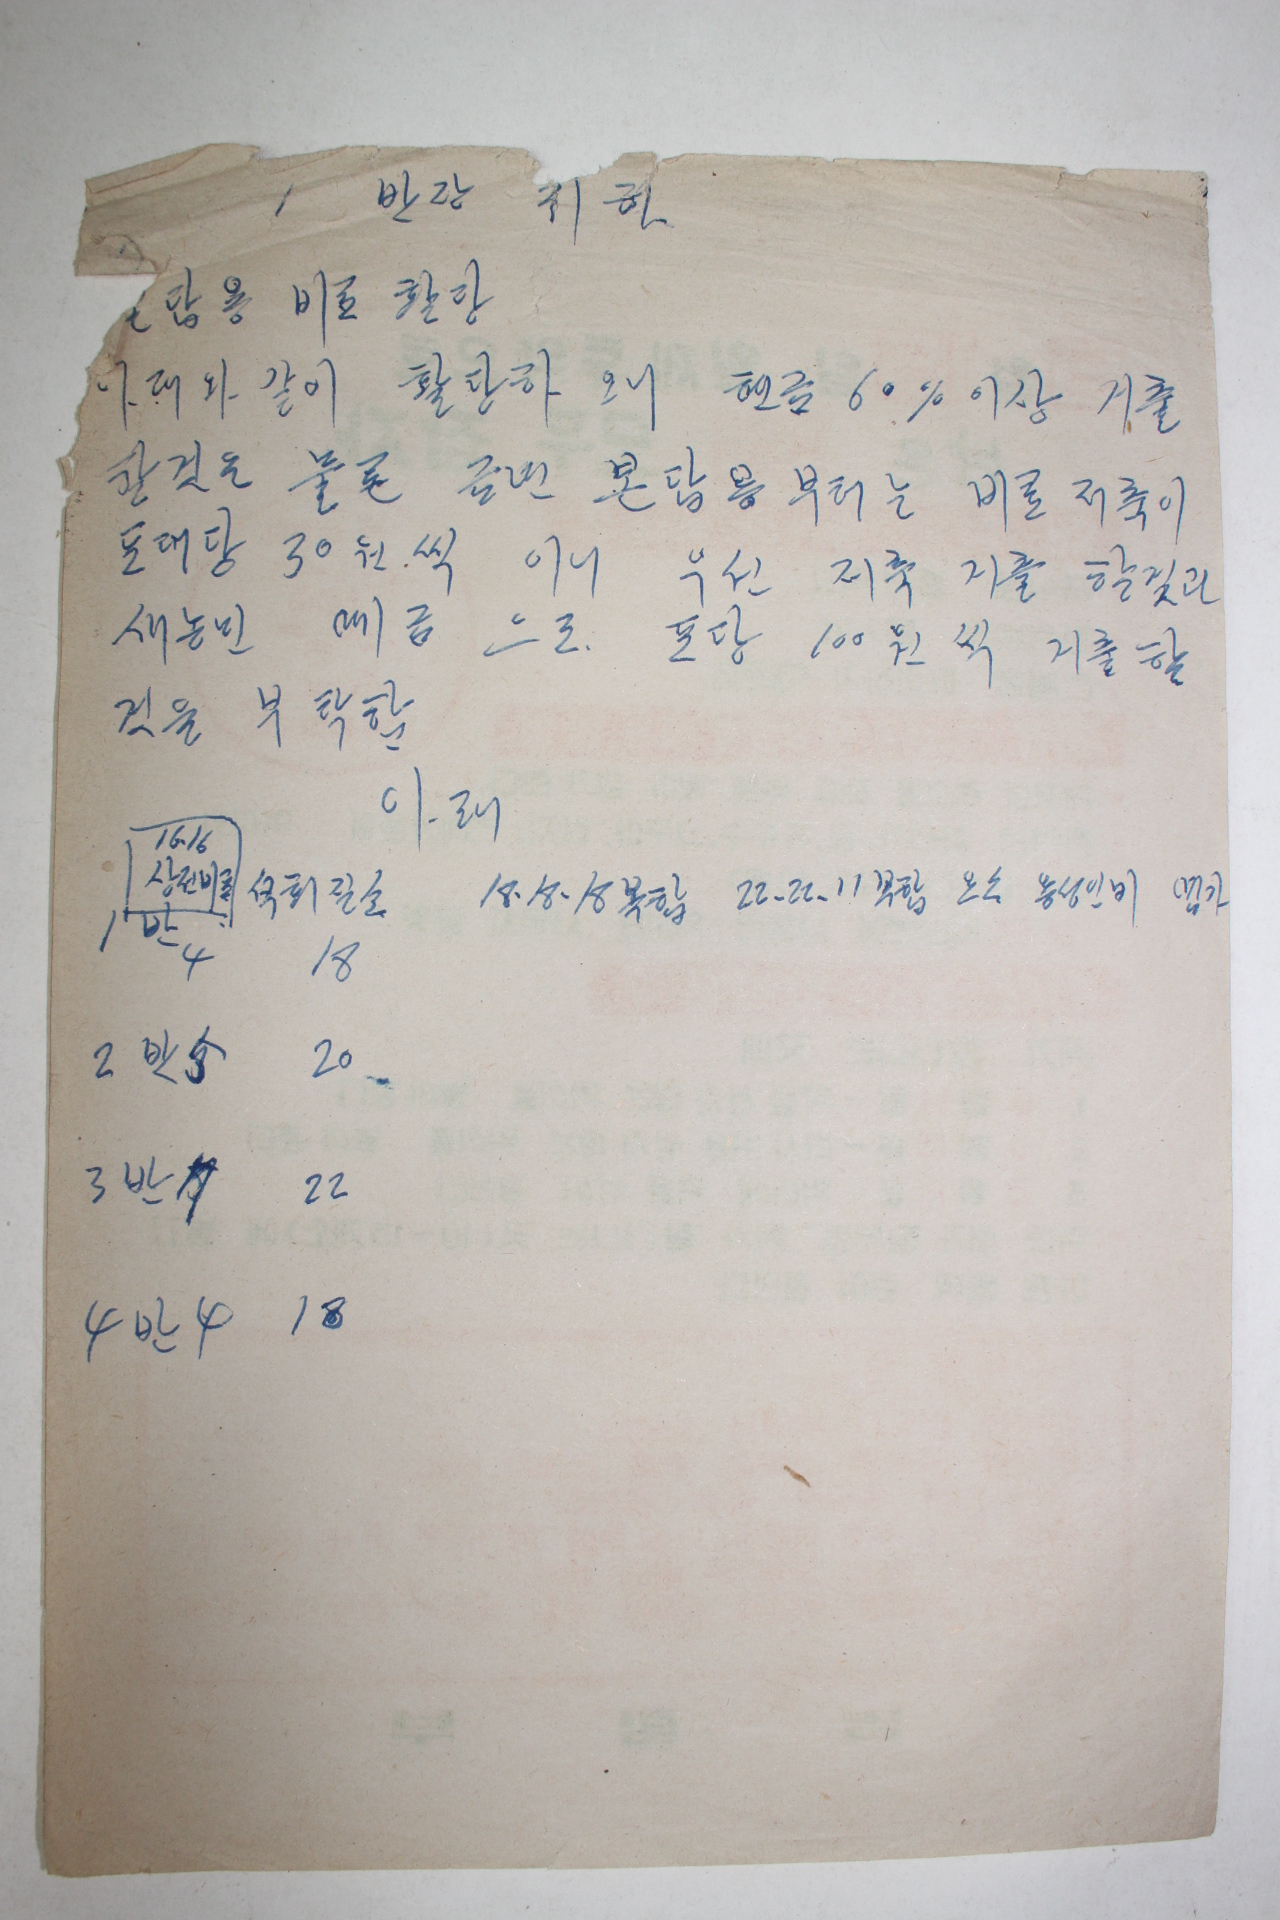 1 반장 귀하
본답용 비료 활당
아래와 같이 활당하오니 현금 60% 이상 거출
할것은 물론 금번 본답용부터는 비료저축이
포대당 30원씩 이니 우선 저축 거출 할것과
새농민 예금 으로. 포당 100원씩 거출할
것을 부탁함
아.래
16.16
상전비료 석회질소 18-18-18복합 22-22-11복합 요소 용성인비 염가
1 반 4 18
2 반 20
3 반 22
4 반 4 18